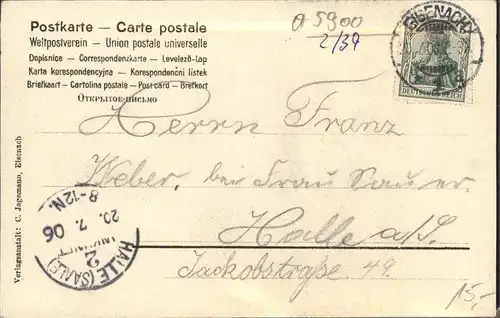 Postkarte – Carte postale
Weltpostverein – Union postale universelle
Dopisnice – Correspondenzkarte – Levelező-Lap
Karta korespondencyjna – Korespondenční lístek
Briefkaart – Cartolina postale – Post card – Brefkort
Открытое письмо
5900
2/39
EISENACH
DEUTSCHES REICH
Herrn Franz
Weber, bei Frau Sauer.
Halle a/S.
Jackobstrgße 49.
8-12N.
20. 7. 06
2
HALLE (SAALE)
Verlagsanstalt: C. Jagemann, Eisenach
15,-